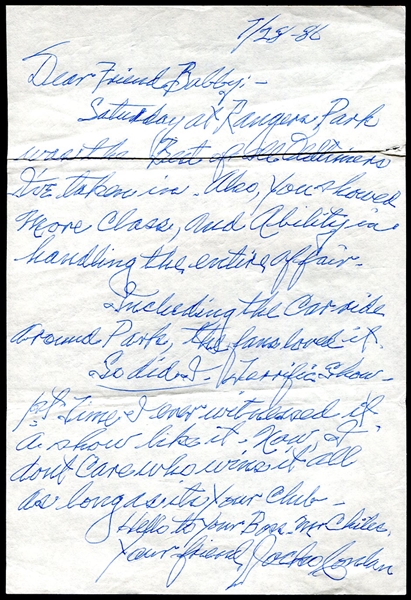 7/28-86
Dear Friend Bobby:-
Saturday at Rangers Park
was the Best of all Oldtimers
I've taken in. Also, you showed
More Class, and Ability in
handling the entire affair.
Including the Car ride
around Park, the fans loved it.
So did I. Terrific Show-
1st Time I ever witnessed
a show like it. Now, I
dont Care who wins it all
as long as its Your Club-
Hello to Your Boss Mr Chiles.
Your friend, Jocko Conlan